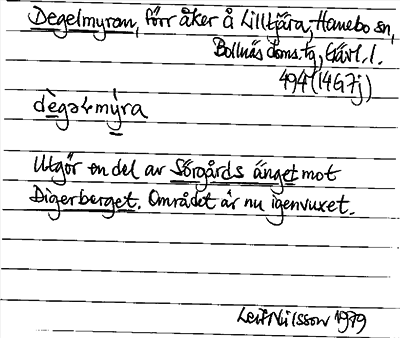 Degelmyran, förr åker å Lilltjära, Hanebo sn,
Bollnäs doms.tg, Gävl. l.
494 (14G7j)
dègəɫmỳra
Utgör en del av Sörgårds änget mot
Digerberget. Området är nu igenvuxet.
Leif Nilsson 1979